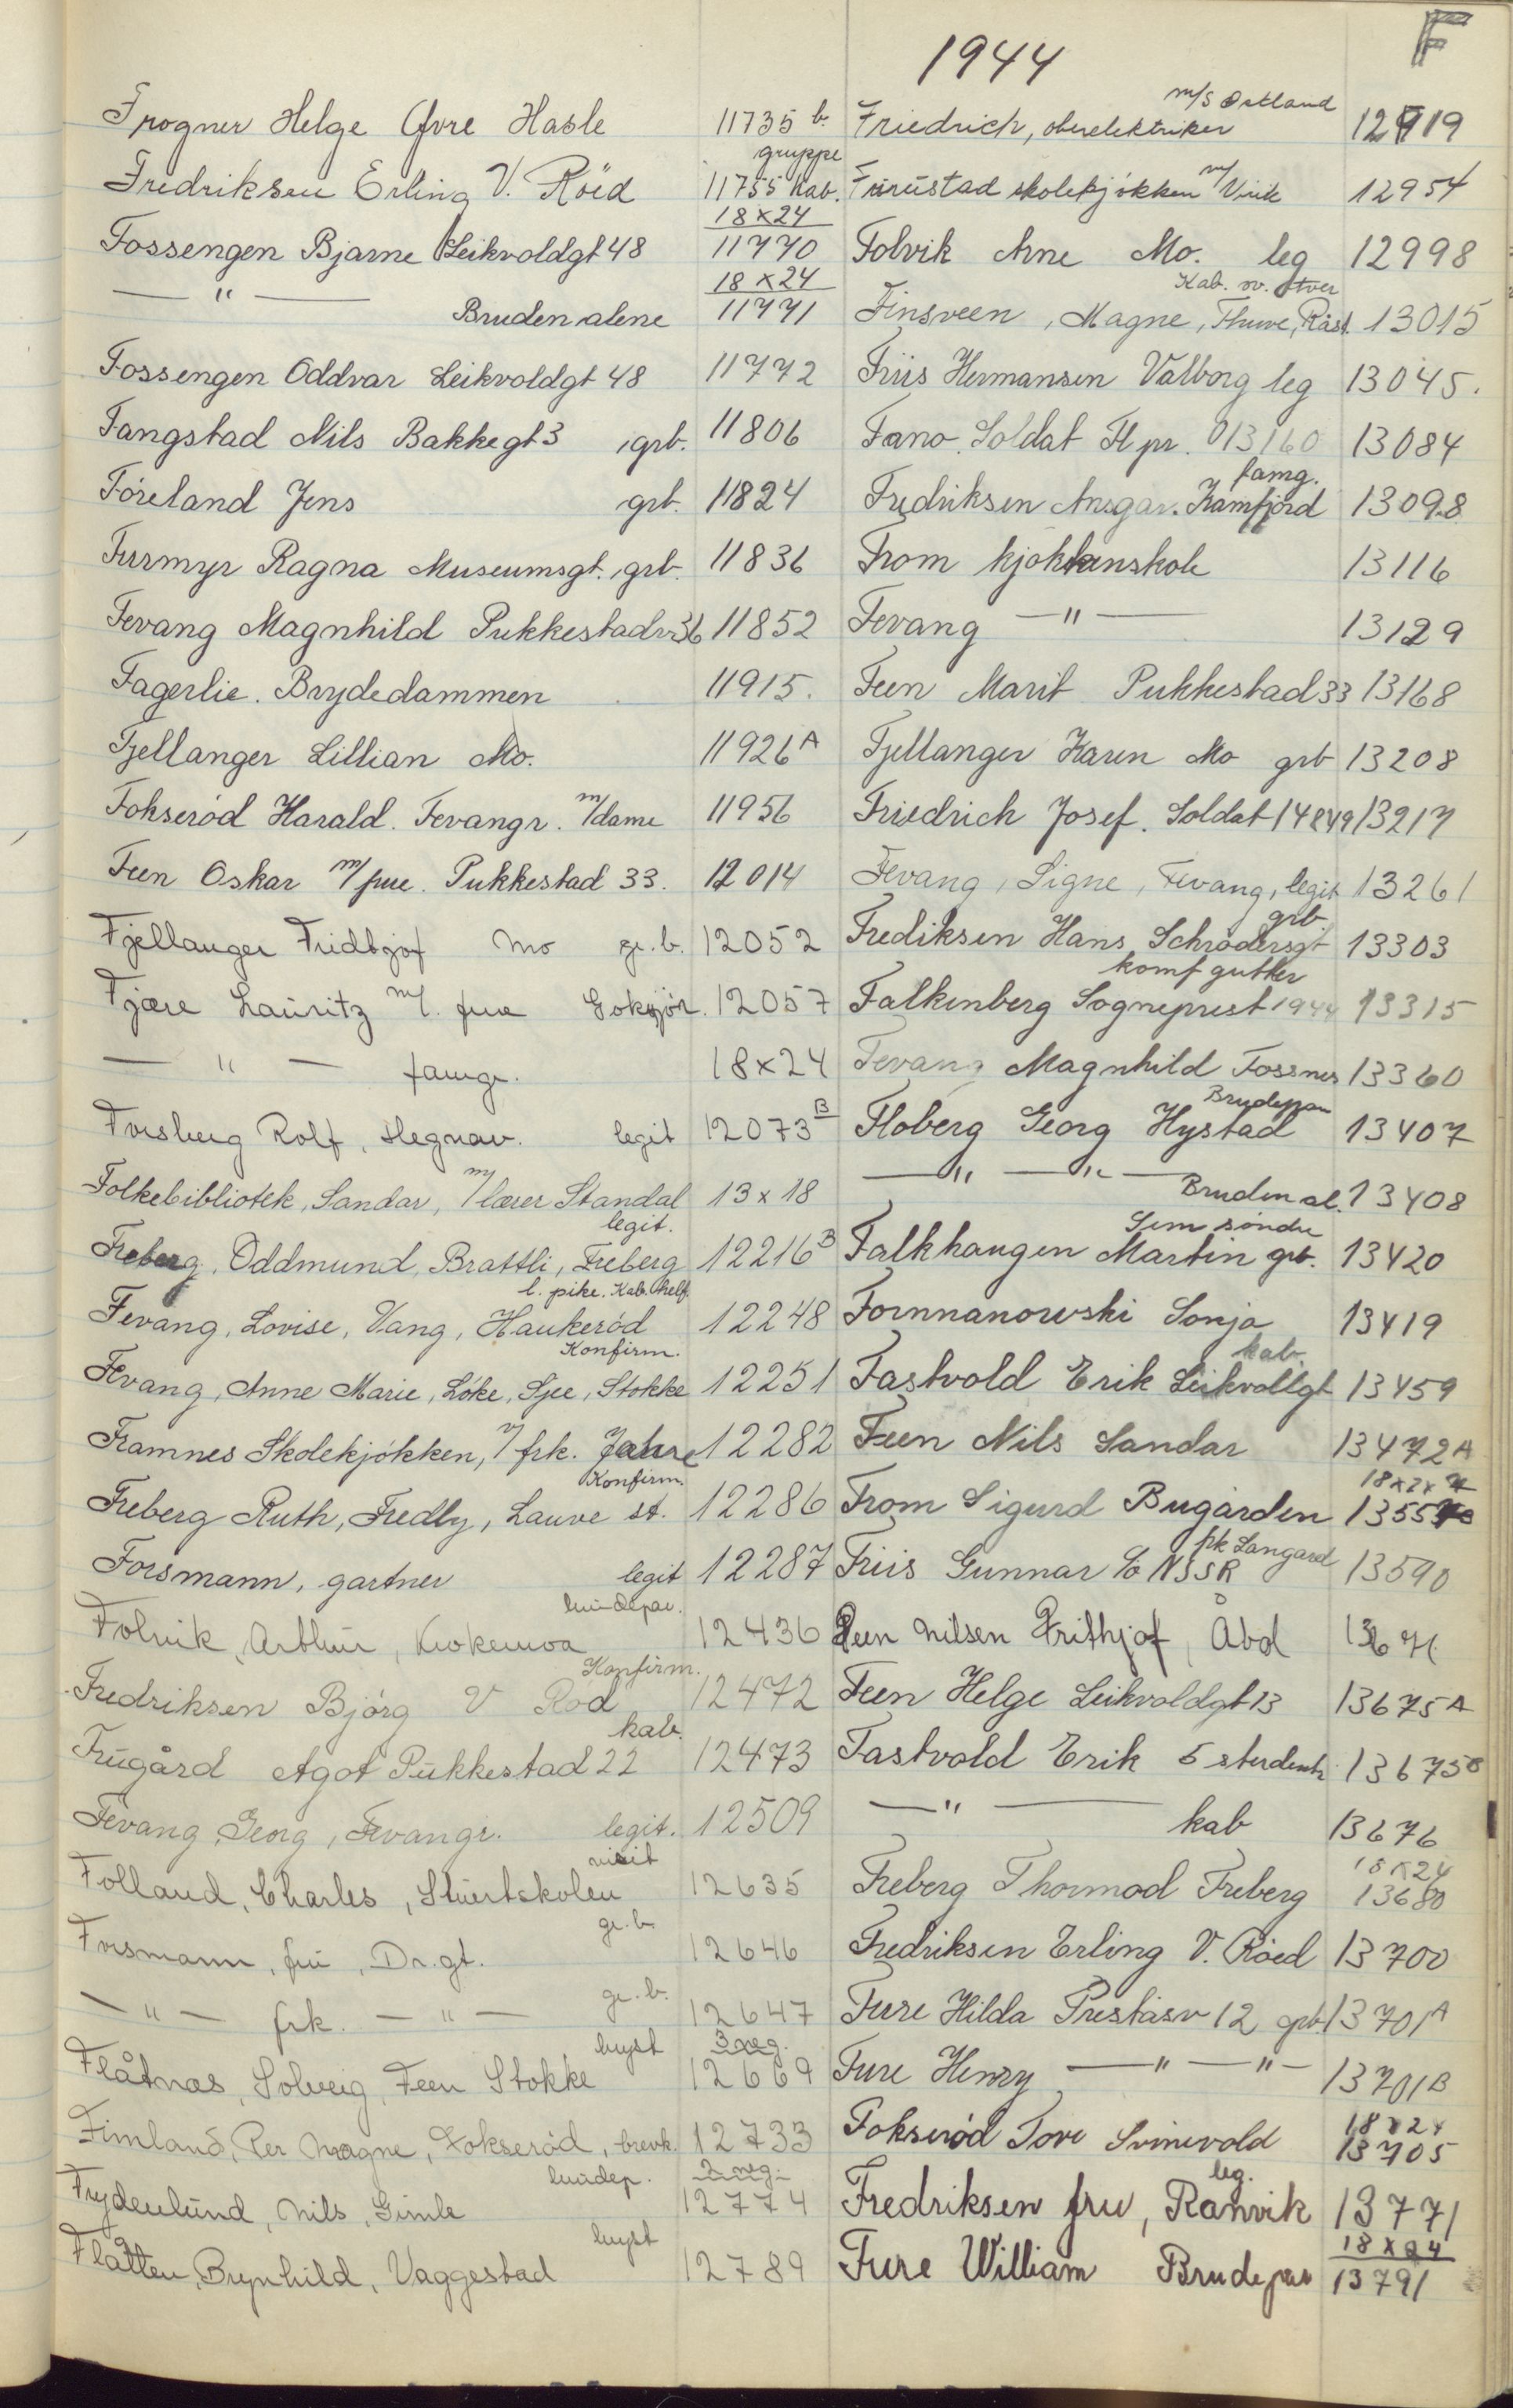 1944
F
Frogner Helge Øvre Hasle 11735 b.
gruppe
Fredriksen Erling V. Röed 11755 Kab.
18x24
Fossengen Bjarne Leikvoldgt 48 11770
18x24
— " — Bruden alene 11771
Fossengen Oddvar Leikvoldgt 48 11772
Fangstad Nils Bakkegt 3 grb. 11806
Föreland Jens grb. 11824
Furmyr Ragna Museumsgt. grb. 11836
Fevang Magnhild Pukkestadv. 36 11852
Fagerlie. Brydedammen 11915.
Fjellanger Lillian Mo. 11926 A
Fokseröd Harald. Fevangr. m/dame 11956
Feen Oskar m/frue. Pukkestad 33. 12014
Fjellanger Fridtjof Mo gr.b. 12052
Fjære Lauritz m/. frue Goksjör. 12057
— " — famgr. 18x24
Forsberg Rolf, Hegnav. legit 12073 B
Folkebibliotek, Sandar, m/lærer Standal 13x18
legit.
Freberg, Oddmund, Brattli, Freberg 12216 B
l. pike. Kab. helf.
Fevang, Lovise, Vang, Haukeröd 12248
Konfirm.
Fevang, Anne Marie, Löke, Sjue, Stokke 12251
Framnes Skolekjökken, m/ frk. Jahre 12282
Konfirm.
Freberg Ruth, Fredly, Lauve st. 12286
Forsmann, gartner legit 12287
brudepar.
Folvik, Arthur, Krokemoa 12436
Konfirm.
Fredriksen Bjórg V Rod 12472
kab.
Frugård Agot Pukkestad 22 12473
Fevang, Georg, Fevangr. legit. 12509
visit
Folland, Charles, Stuertskolen 12635
gr.b.
Forsmann, fru, Dr.gt. 12646
gr.b.
— " — frk. — " — 12647
bryst 3 neg.
Flåtnes, Solveig, Feen Stokke 12669
Fimland, Per Magne, Fokseröd, brevk. 12733
brudep. 2 neg.
Frydenlund, Nils, Gimle 12774
bryst
Flåtten, Brynhild, Vaggestad 12789
m/s Ortland
Friedrich, oberelektriker 12919
Furustad skolekjökken m/ Virik 12954
Folvik Arne Mo. leg 12998
Kab. sv. tver
Finsveen, Magne, Thuve, Råst. 13015
Friis Hermansen Valborg leg 13045.
Fano. Soldat Fl pr. 013160 13084
famg.
Fredriksen Ansgar. Kamfjord 13098
From kjökkenskole 13116
Fevang — " — 13129
Feen Marit Pukkestad 33 13168
Fjellanger Karen Mo grb 13208
Friedrich Josef. Soldat 14849 13217
Fevang, Signe, Fevang, legit 13261
grb.
Frediksen Hans Schrödersgt 13303
komf gutter
Falkenberg Sogneprest 1944 13315
Fevang Magnhild Fossnes 13360
Brudepar
Floberg Georg Hystad 13407
— " — " — Bruden al. 13408
Sem söndre
Falkhaugen Martin grb. 13420
Fornnanowski Sonja 13419
kab.
Fastvold Erik Leikvollgt 13459
Feen Nils Sandar 13472 A
18x24
From Sigurd Bugården 1355
frk Langård
Friis Gunnar c/o NSSR 13590
Feen Nilsen Frithjof, Åbol
Feen Helge Leikvoldgt 13 13675 A
Fastvold Erik 5 studentr 13675 B
— " — kab 13676
18x24
Freberg Thormod Freberg 13680
Fredriksen Erling V. Röed 13700
Fure Hilda Preståsv 12 grb 13701 A
Fure Henry — " — " — 13701 B
18x24
Fokseröd Tove Svinevold 13705
leg.
Fredriksen fru, Ranvik 13771
18x24
Fure William Brudepar 13791